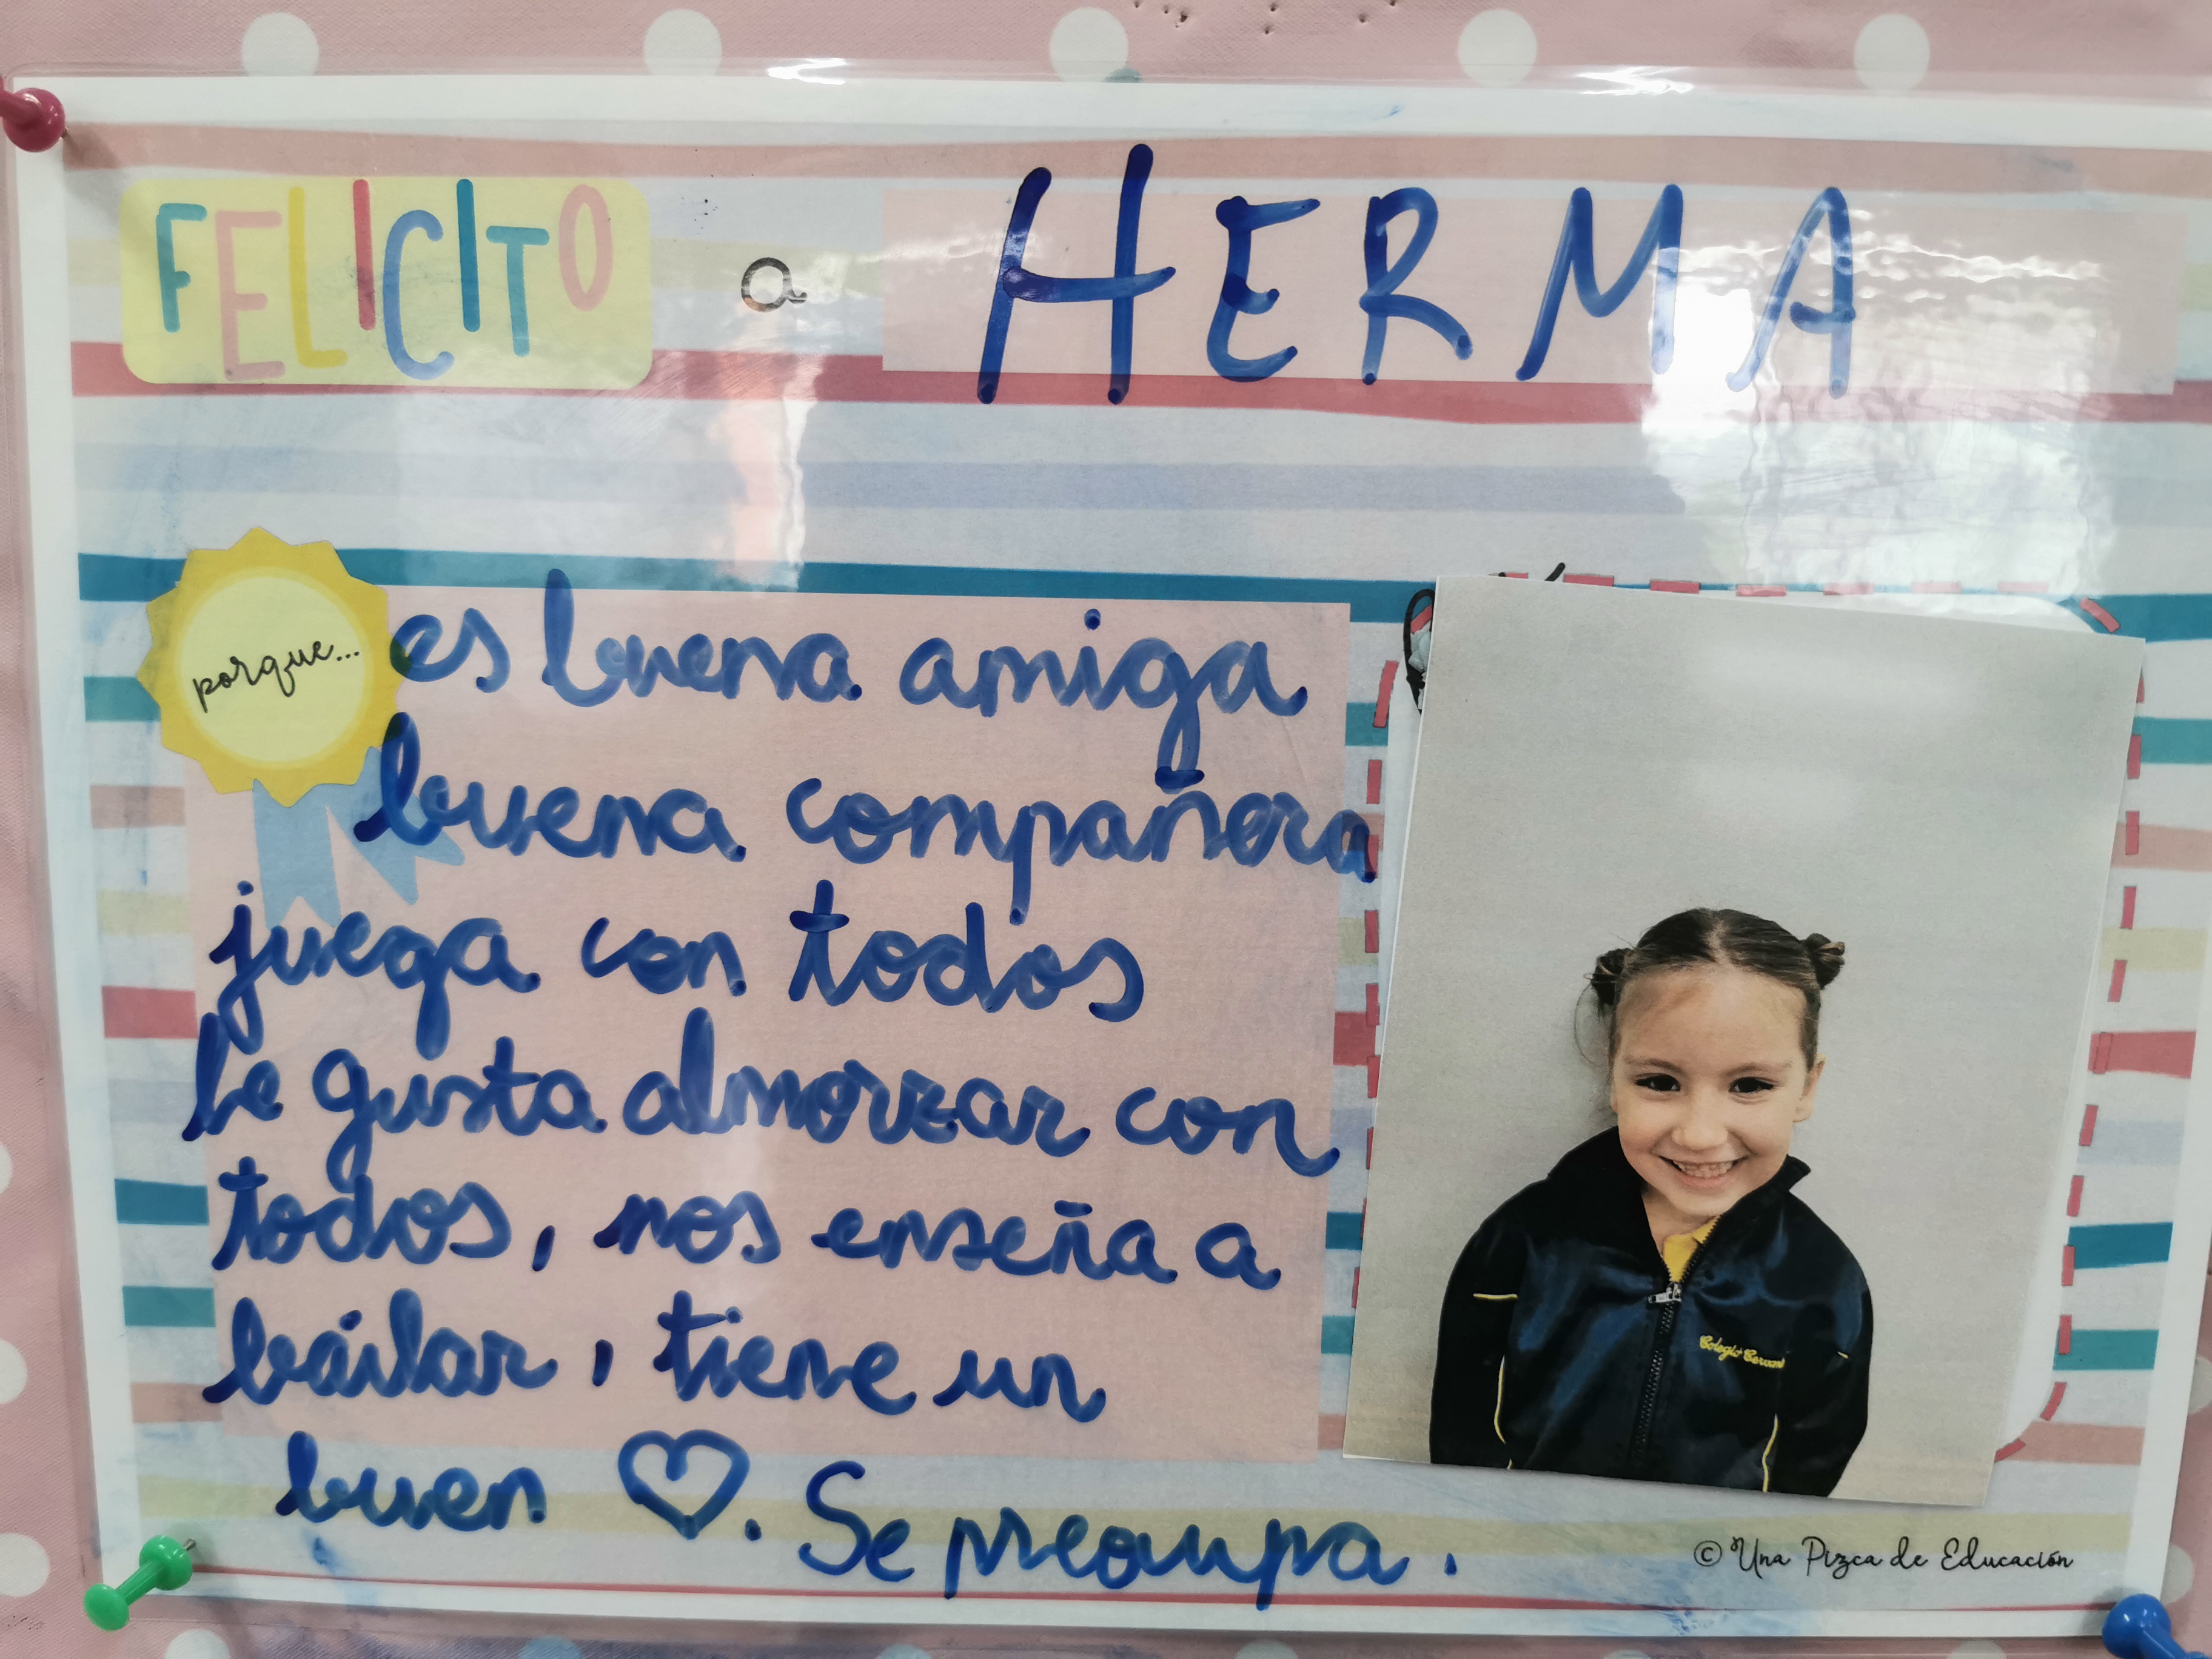 FELICITO a HERMA
porque... es buena amiga
buena compañera
juega con todos
le gusta almorzar con
todos, nos enseña a
báilar, tiene un
buen ♡. Se preocupa.
Colegio Cervant
© Una Pizca de Educación